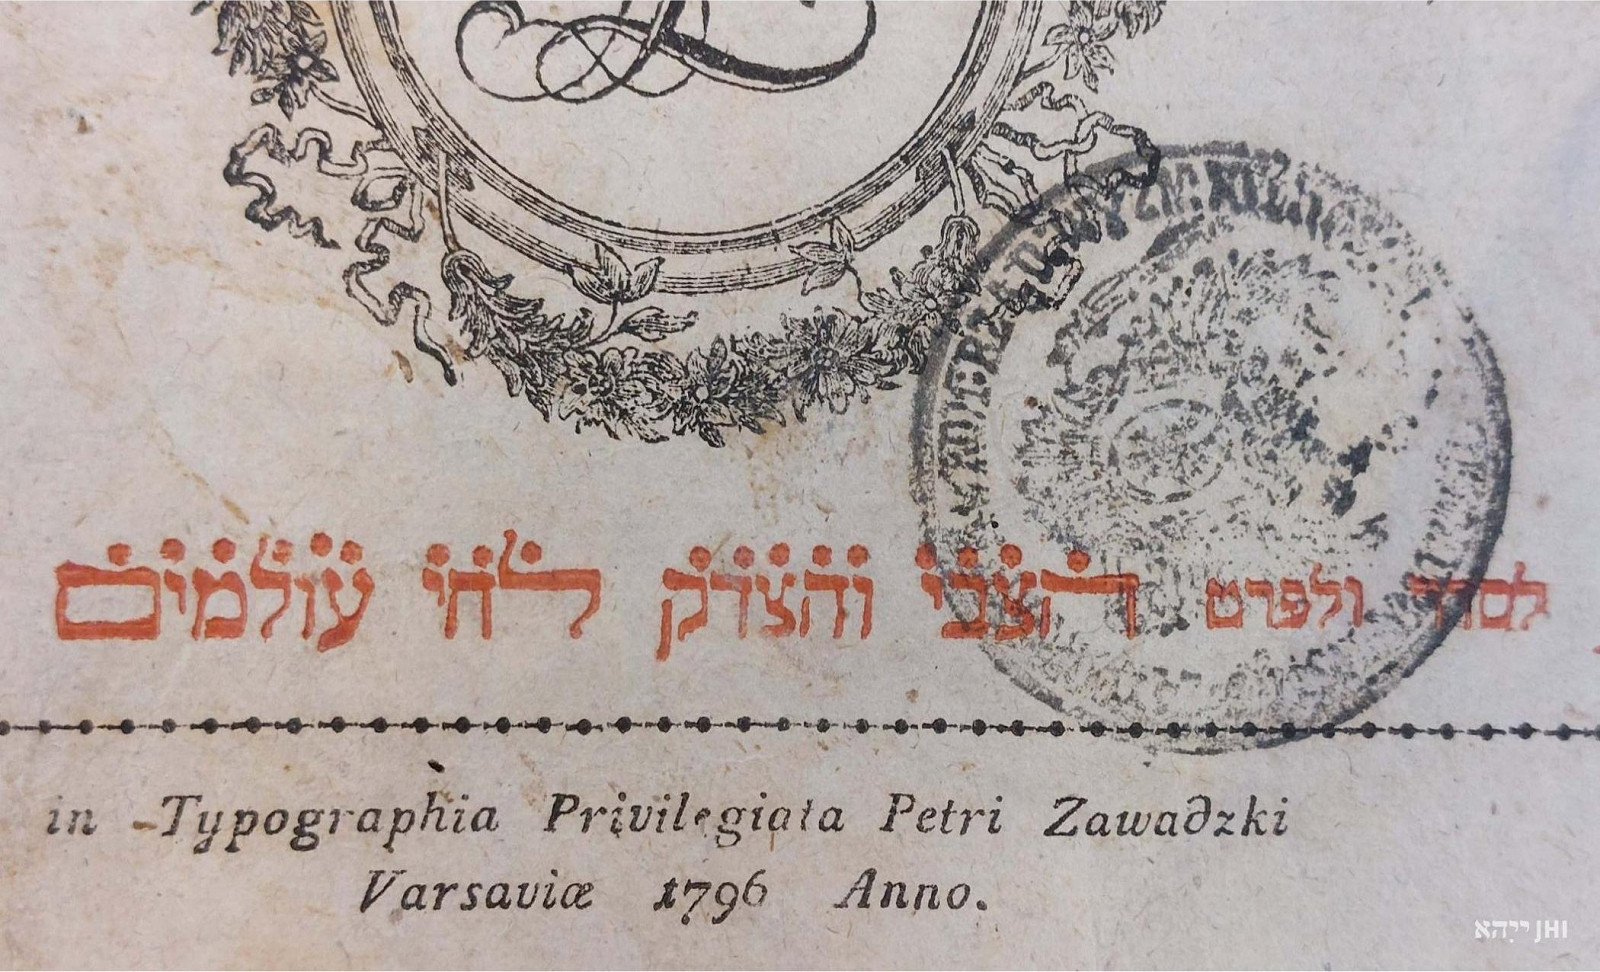 לסדר ולפרט הצבי והצדק לחי עולמים
in Typographia Privilegiata Petri Zawadzki
Varsaviæ 1796 Anno.
ייִהא JHI